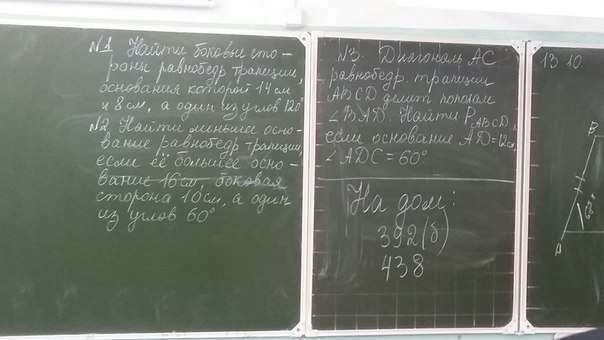 №1 Найти боковые сто-
роны равнобедр трапеции,
основания которой 14 см
и 8 см, а один из углов 120°
№2 Найти меньшее осно-
вание равнобедр трапеции,
если её большее осно-
вание 16 см, боковая
сторона 10 см, а один
из углов 60°
№3. Диагональ AC
равнобедр. трапеции
ABCD делит пополам
∠BAD. Найти P ABCD,
если основание AD=12см,
∠ADC=60°
На дом:
392(б)
438
13.10.
B